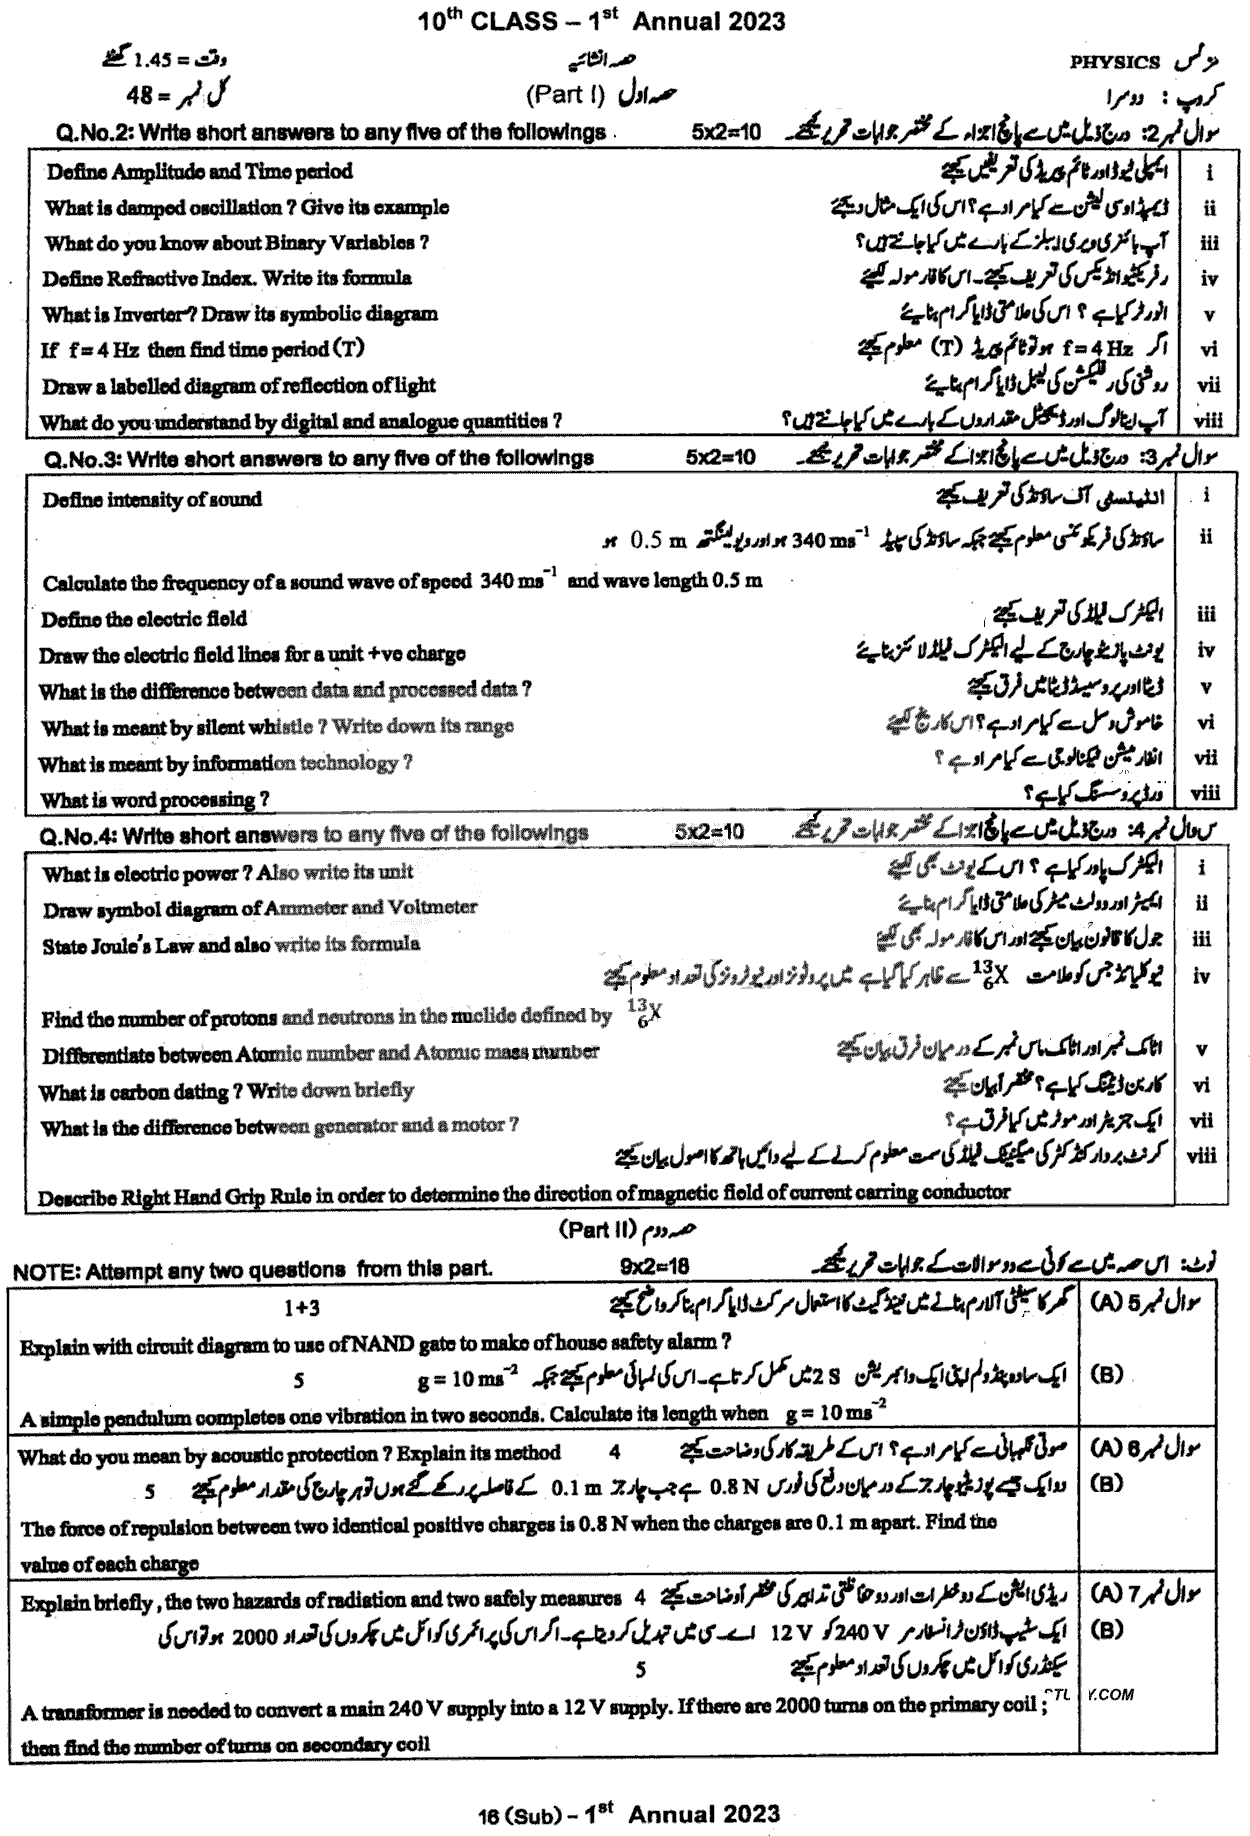 10th CLASS – 1st Annual 2023
PHYSICS فزکس حصہ انشائیہ وقت = 1.45 گھنٹے
گروپ : دوسرا حصہ اول (Part I) کل نمبر = 48
Q.No.2: Write short answers to any five of the followings . 5x2=10 سوال نمبر 2: درج ذیل میں سے پانچ اجزاء کے مختصر جوابات تحریر کیجئے۔
Define Amplitude and Time period ایمپلی ٹیوڈ اور ٹائم پیریڈ کی تعریفیں کیجئے i
What is damped oscillation ? Give its example ڈیمپڈ اوسی لیشن سے کیا مراد ہے؟ اس کی ایک مثال دیجئے ii
What do you know about Binary Variables ? آپ بائنری ویری ایبلز کے بارے میں کیا جانتے ہیں؟ iii
Define Refractive Index. Write its formula رفریکٹیو انڈیکس کی تعریف کیجئے۔ اس کا فارمولہ لکھیئے iv
What is Inverter? Draw its symbolic diagram انورٹر کیا ہے ؟ اس کی علامتی ڈایا گرام بنایئے v
If f = 4 Hz then find time period (T) اگر f = 4 Hz ہو تو ٹائم پیریڈ (T) معلوم کیجئے vi
Draw a labelled diagram of reflection of light روشنی کی رفلیکشن کی لیبل ڈایا گرام بنایئے vii
What do you understand by digital and analogue quantities ? آپ اینالوگ اور ڈیجیٹل مقداروں کے بارے میں کیا جانتے ہیں؟ viii
Q.No.3: Write short answers to any five of the followings 5x2=10 سوال نمبر 3: درج ذیل میں سے پانچ اجزا کے مختصر جوابات تحریر کیجئے۔
Define intensity of sound انٹینسٹی آف ساؤنڈ کی تعریف کیجئے i
ساؤنڈ کی فریکوئنسی معلوم کیجئے جبکہ ساؤنڈ کی سپیڈ 340 ms⁻¹ ہو اور ویولینگتھ 0.5 m ہو ii
Calculate the frequency of a sound wave of speed 340 ms⁻¹ and wave length 0.5 m
Define the electric field الیکٹرک فیلڈ کی تعریف کیجئے iii
Draw the electric field lines for a unit +ve charge یونٹ پازیٹو چارج کے لیے الیکٹرک فیلڈ لائنز بنایئے iv
What is the difference between data and processed data ? ڈیٹا اور پروسیسڈ ڈیٹا میں فرق کیجئے v
What is meant by silent whistle ? Write down its range خاموش وسل سے کیا مراد ہے؟ اس کا رینج لکھیئے vi
What is meant by information technology ? انفارمیشن ٹیکنالوجی سے کیا مراد ہے ؟ vii
What is word processing ? ورڈ پروسسنگ کیا ہے؟ viii
Q.No.4: Write short answers to any five of the followings 5x2=10 سوال نمبر 4: درج ذیل میں سے پانچ اجزا کے مختصر جوابات تحریر کیجئے۔
What is electric power ? Also write its unit الیکٹرک پاور کیا ہے ؟ اس کے یونٹ بھی لکھیئے i
Draw symbol diagram of Ammeter and Voltmeter ایمیٹر اور وولٹ میٹر کی علامتی ڈایا گرام بنایئے ii
State Joule's Law and also write its formula جول کا قانون بیان کیجئے اور اس کا فارمولہ بھی لکھیئے iii
نیوکلیائڈ جس کو علامت ¹³₆X سے ظاہر کیا گیا ہے میں پروٹونز اور نیوٹرونز کی تعداد معلوم کیجئے iv
Find the number of protons and neutrons in the nuclide defined by ¹³₆X
Differentiate between Atomic number and Atomic mass number اٹامک نمبر اور اٹامک ماس نمبر کے درمیان فرق بیان کیجئے v
What is carbon dating ? Write down briefly کاربن ڈیٹنگ کیا ہے؟ مختصراً بیان کیجئے vi
What is the difference between generator and a motor ? ایک جنریٹر اور موٹر میں کیا فرق ہے؟ vii
کرنٹ بردار کنڈکٹر کی میگنیٹک فیلڈ کی سمت معلوم کرنے کے لیے دائیں ہاتھ کا اصول بیان کیجئے viii
Describe Right Hand Grip Rule in order to determine the direction of magnetic field of current carring conductor
حصہ دوم (Part II)
NOTE: Attempt any two questions from this part. 9x2=18 نوٹ: اس حصہ میں سے کوئی سے دو سوالات کے جوابات تحریر کیجئے۔
سوال نمبر 5 (A) گھر کا سیفٹی آلارم بنانے میں نینڈ گیٹ کا استعمال سرکٹ ڈایا گرام بنا کر واضح کیجئے 1+3
Explain with circuit diagram to use of NAND gate to make of house safety alarm ?
(B) ایک سادہ پنڈولم اپنی ایک وائبریشن 2 S میں مکمل کرتا ہے۔ اس کی لمبائی معلوم کیجئے جبکہ g = 10 ms⁻² 5
A simple pendulum completes one vibration in two seconds. Calculate its length when g = 10 ms⁻²
What do you mean by acoustic protection ? Explain its method 4 صوتی نگہبانی سے کیا مراد ہے؟ اس کے طریقہ کار کی وضاحت کیجئے سوال نمبر 6 (A)
(B) دو ایک جیسے پوزیٹیو چارجز کے درمیان دفع کی فورس 0.8 N ہے جب چارجز 0.1 m کے فاصلہ پر رکھے گئے ہوں تو ہر چارج کی مقدار معلوم کیجئے 5
The force of repulsion between two identical positive charges is 0.8 N when the charges are 0.1 m apart. Find the
value of each charge
Explain briefly , the two hazards of radiation and two safely measures 4 ریڈی ایشن کے دو خطرات اور دو حفاظتی تدابیر کی مختصراً وضاحت کیجئے سوال نمبر 7 (A)
(B) ایک سٹیپ ڈاؤن ٹرانسفارمر 240 V کو 12 V اے۔سی میں تبدیل کر دیتا ہے۔ اگر اس کی پرائمری کوائل میں چکروں کی تعداد 2000 ہو تو اس کی
سیکنڈری کوائل میں چکروں کی تعداد معلوم کیجئے 5
A transformer is needed to convert a main 240 V supply into a 12 V supply. If there are 2000 turns on the primary coil ;
Y.COM
then find the number of turns on secondary coil
16 (Sub) – 1st Annual 2023